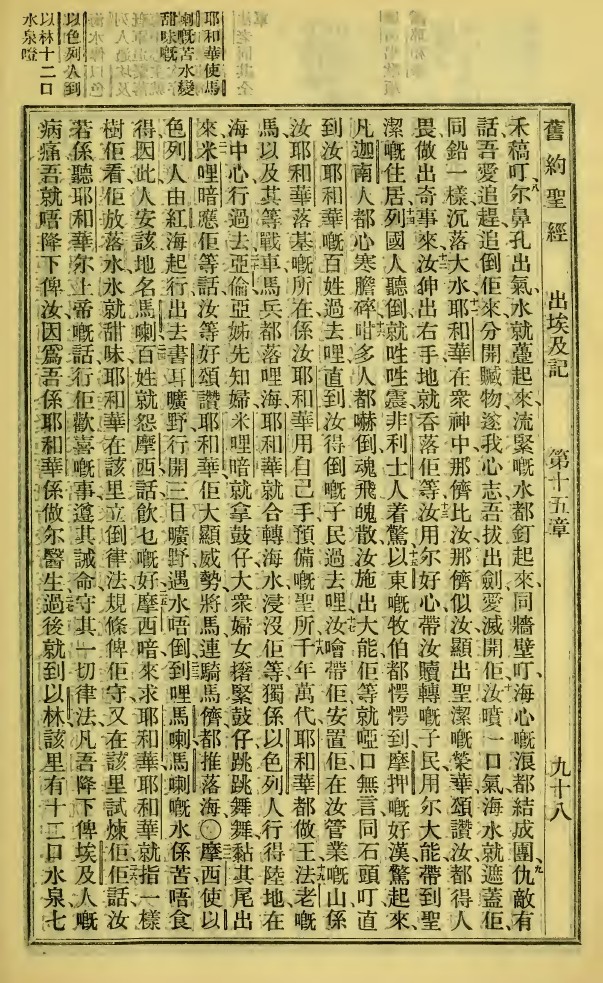 舊約聖經　出埃及記　第十五章　九十八
禾稿叮尔鼻孔出氣水就躉起來、流緊嘅水都釘起來、同牆壁叮、海心嘅浪都結成團、仇敵有
話吾愛追趕追倒佢來分開贓物遂我心志吾拔出劍愛滅開佢、汝噴一口氣海水就遮蓋佢、
同鉛一樣沉落大水、耶和華在衆神中那儕比汝那儕似汝顯出聖潔嘅榮華頌讚汝都得人
畏做出奇事來、汝伸出右手地就吞落佢等、汝用尔好心帶汝贖轉嘅子民用尔大能帶到聖
潔嘅住居、列國人聽倒就震非利士人着驚、以東嘅牧伯都愕愕到摩押嘅好漢驚起來、
凡迦南人都心寒膽碎、咁多人都嚇倒魂飛魄散、汝施出大能佢等就啞口無言同石頭叮直
到汝耶和華嘅百姓過去哩直到汝得倒嘅子民過去哩、汝噲帶佢安置佢在汝管業嘅山係
汝耶和華落基嘅所在係汝耶和華用自己手預備嘅聖所、千年萬代耶和華都做王法老嘅
馬以及其等戰車馬兵都落哩海耶和華就合轉海水浸沒佢等獨係以色列人行得陸地在
海中心行過去、亞倫亞姊先知婦米哩暗就拿鼓仔大衆婦女撦緊鼓仔跳跳舞舞黏其尾出
來、米哩暗應佢等話汝等好頌讚耶和華佢大顯威勢將馬連騎馬儕都推落海、〇摩西使以
色列人由紅海起行出去書耳曠野行開三日曠野遇水唔倒、到哩馬喇、馬喇嘅水係苦唔食
得因此人安該地名馬喇、百姓就怨摩西話飲乜嘅好、摩西喑來求耶和華耶和華就指一樣
樹佢看佢放落水水就甜味耶和華在該里立倒律法規條俾佢守又在該里試煉佢、佢話汝
若係聽耶和華尔上帝嘅話行佢歡喜嘅事遵其誡命守其一切律法凡吾降下俾埃及人嘅
病痛吾就唔降下俾汝因爲吾係耶和華係做尔醫生、過後就到以林該里有十二口水泉七
耶和華使馬
喇嘅苦水變
甜味嘅
以色列人到
以林十二口
水泉嶝